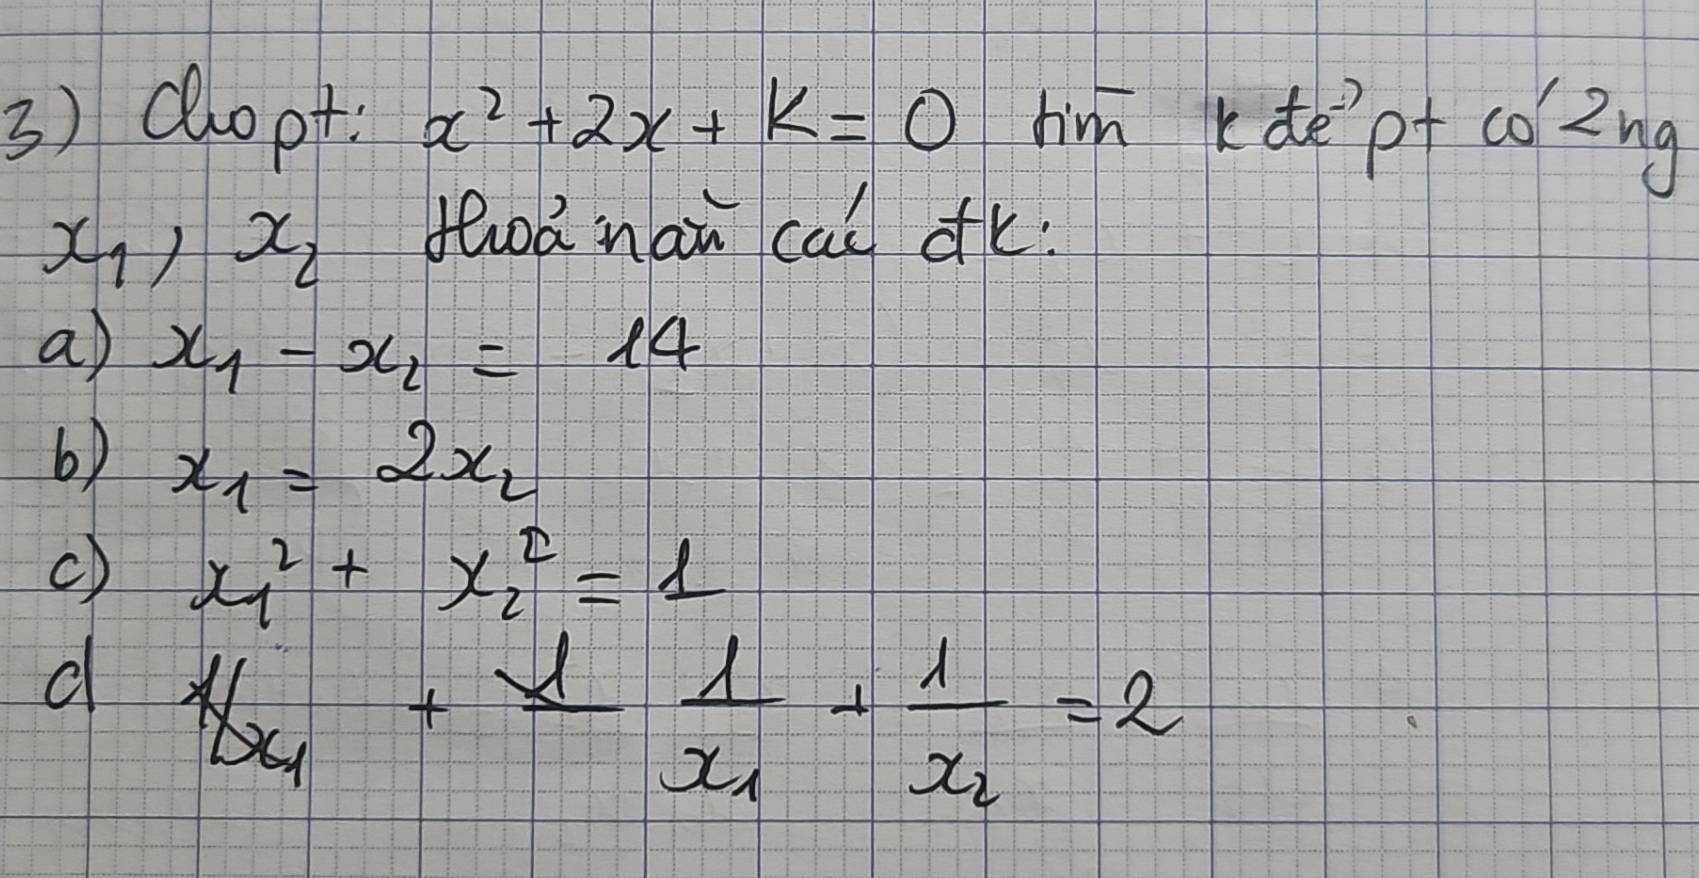 3) Cho pt: x² + 2x + K = 0 tìm k để pt có 2 ng
x₁, x₂ thoả mãn các đk:
a) x₁ - x₂ = 14
b) x₁ = 2x₂
c) x₁² + x₂² = 1
d 1/x₁ + 1/x₂ = 2